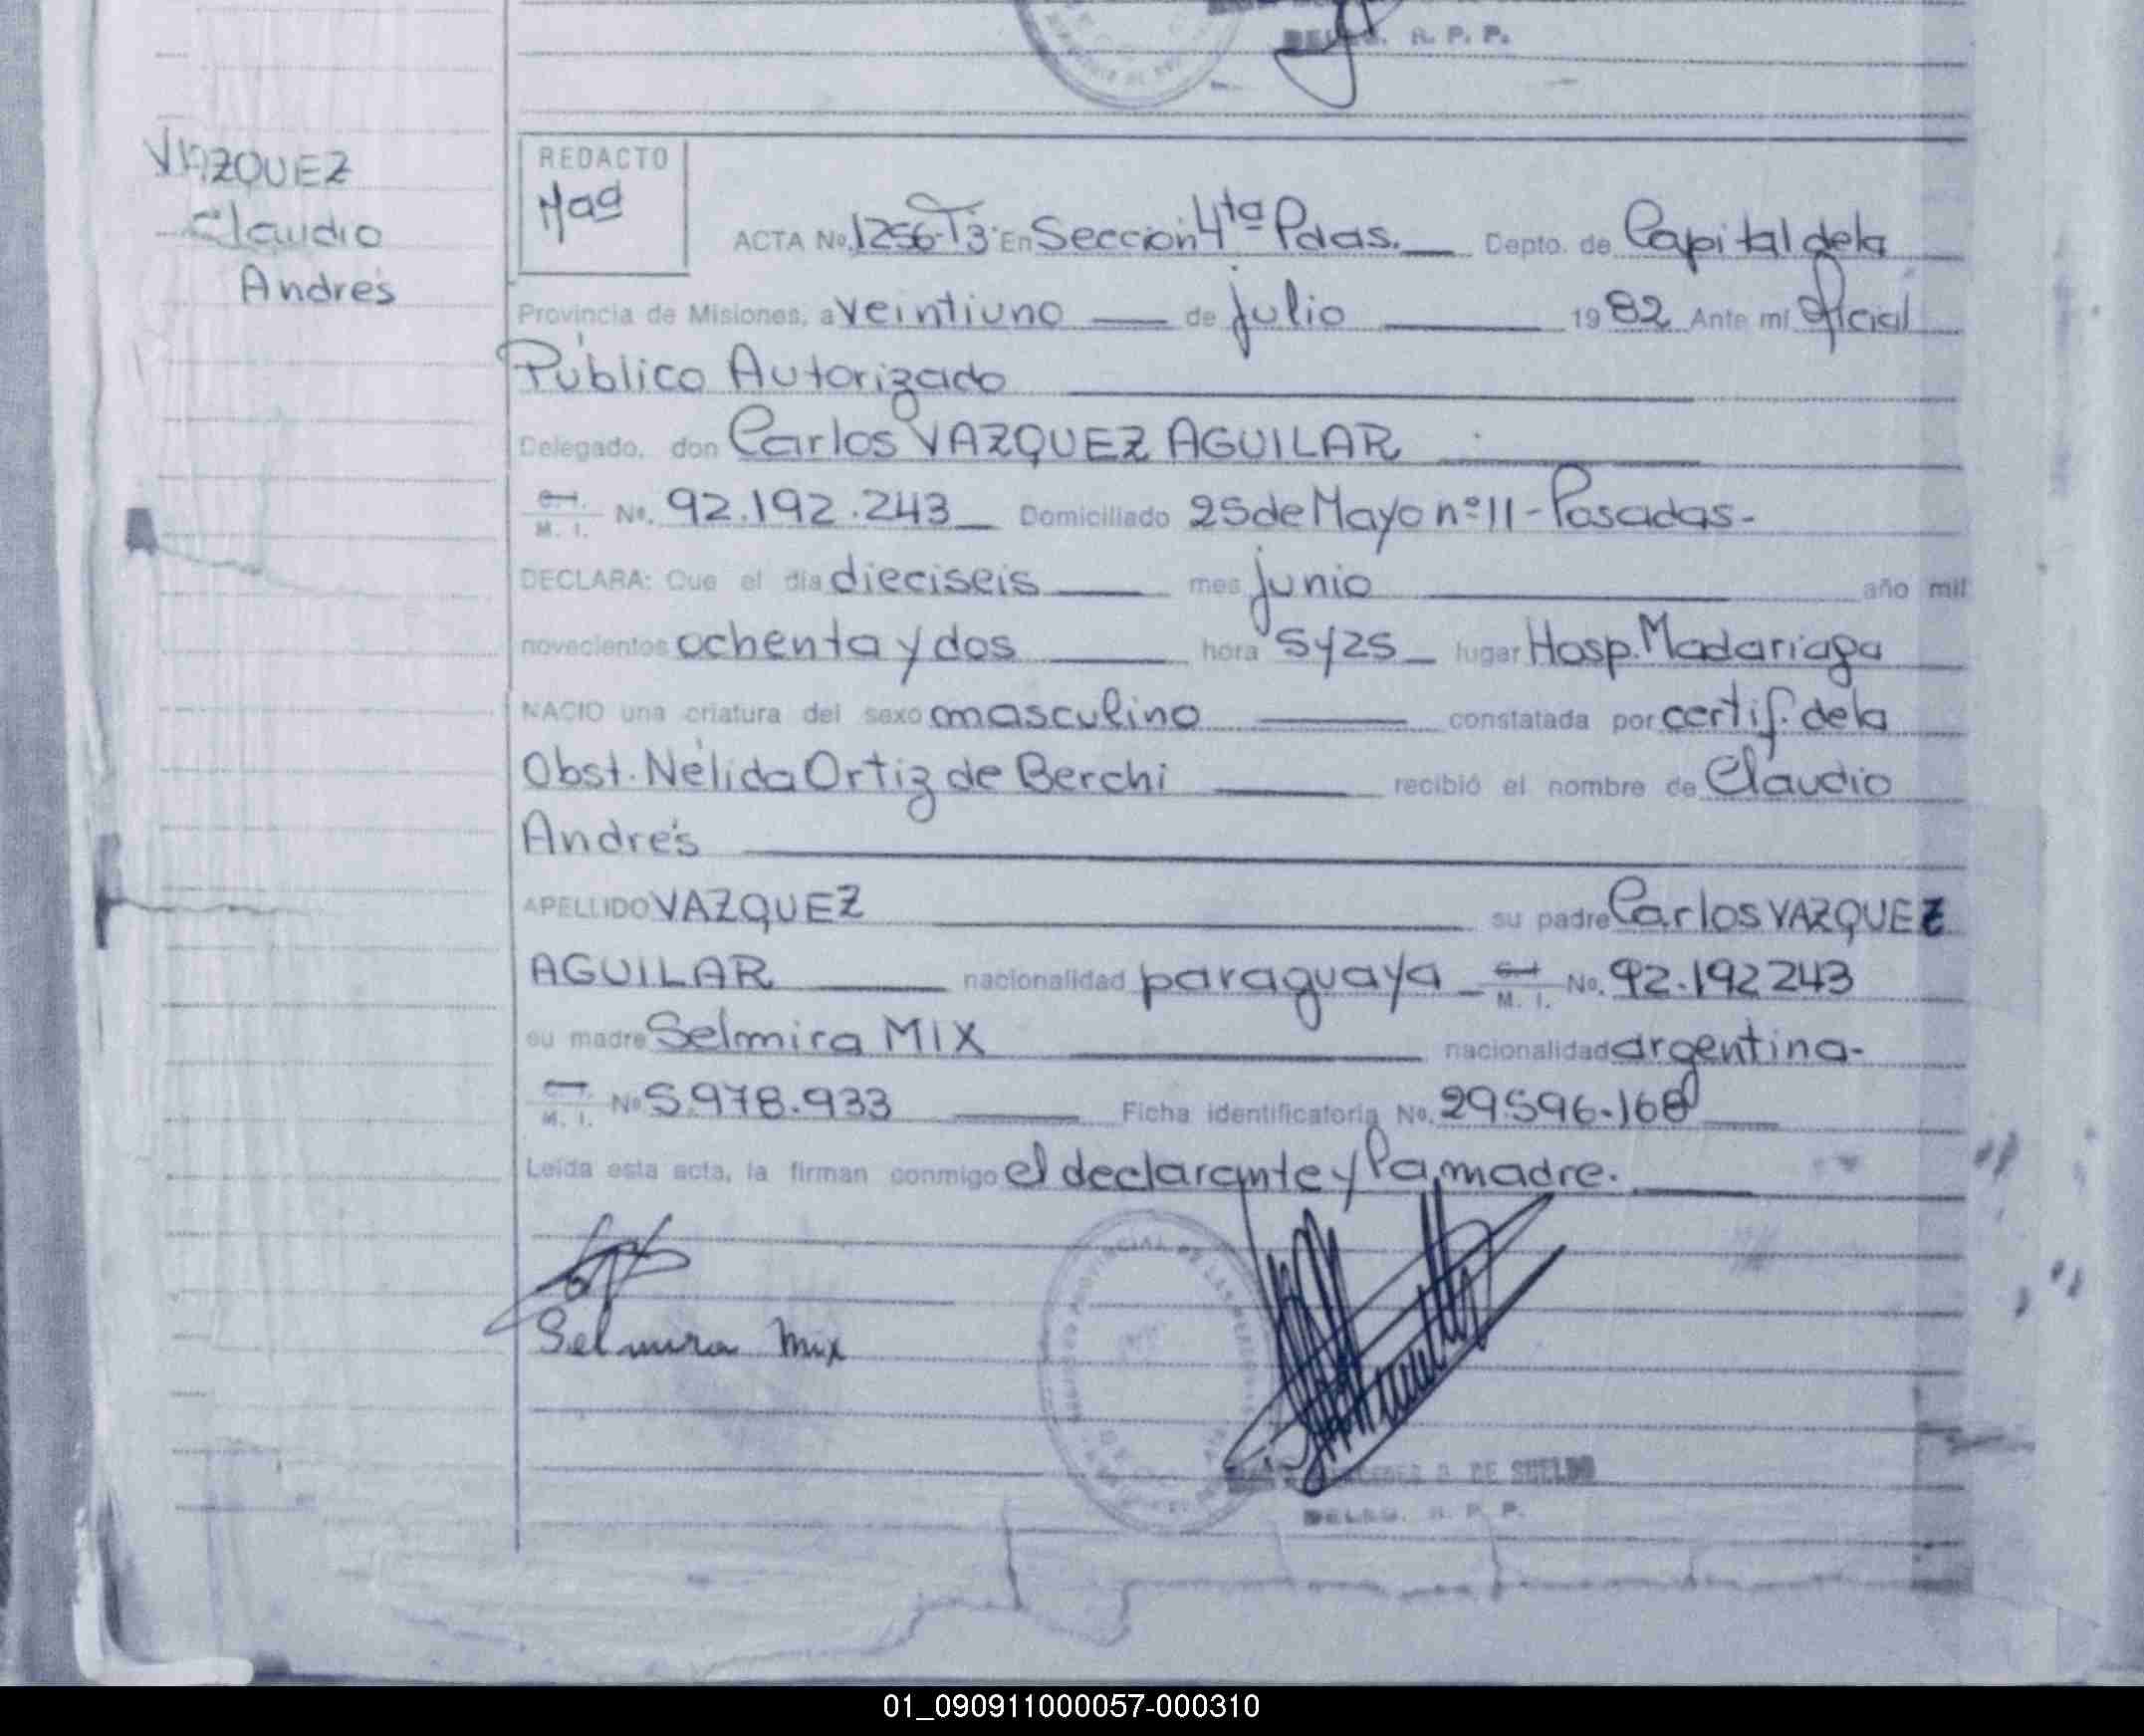 DELEG. R. P. P.
VAZQUEZ
Claudio
Andrés
REDACTO
ACTA No. 1256-T3 En Sección 4ta Pdas. Depto. de Capital de la
Provincia de Misiones, a veintiuno de julio 1982 Ante mi Oficial
Público Autorizado
Delegado, don Carlos VAZQUEZ AGUILAR
C.I. M. I. No. 92.192.243 Domiciliado 25 de Mayo nº 11 - Posadas -
DECLARA: Que el día dieciseis mes junio año mil
novecientos ochenta y dos hora 5 y 25 lugar Hosp. Madariaga
NACIO una criatura del sexo masculino constatada por certif. de la
Obst. Nélida Ortiz de Berchi recibió el nombre de Claudio
Andrés
APELLIDO VAZQUEZ su padre Carlos VAZQUEZ
AGUILAR nacionalidad paraguaya C.I. M. I. No. 92.192243
su madre Selmira MIX nacionalidad argentina-
C.I. M. I. No 5.978.933 Ficha identificatoria No. 29.596.168
Leída esta acta, la firman conmigo el declarante y la madre.
Selmira Mix
DE SUELDO
DELEG. R. P. P.
01_090911000057-000310